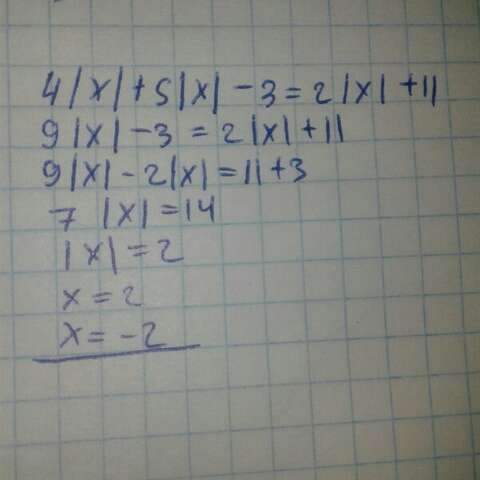 4|x|+5|x|-3=2|x|+11
9|x|-3=2|x|+11
9|x|-2|x|=11+3
7 |x|=14
|x|=2
x=2
x=-2